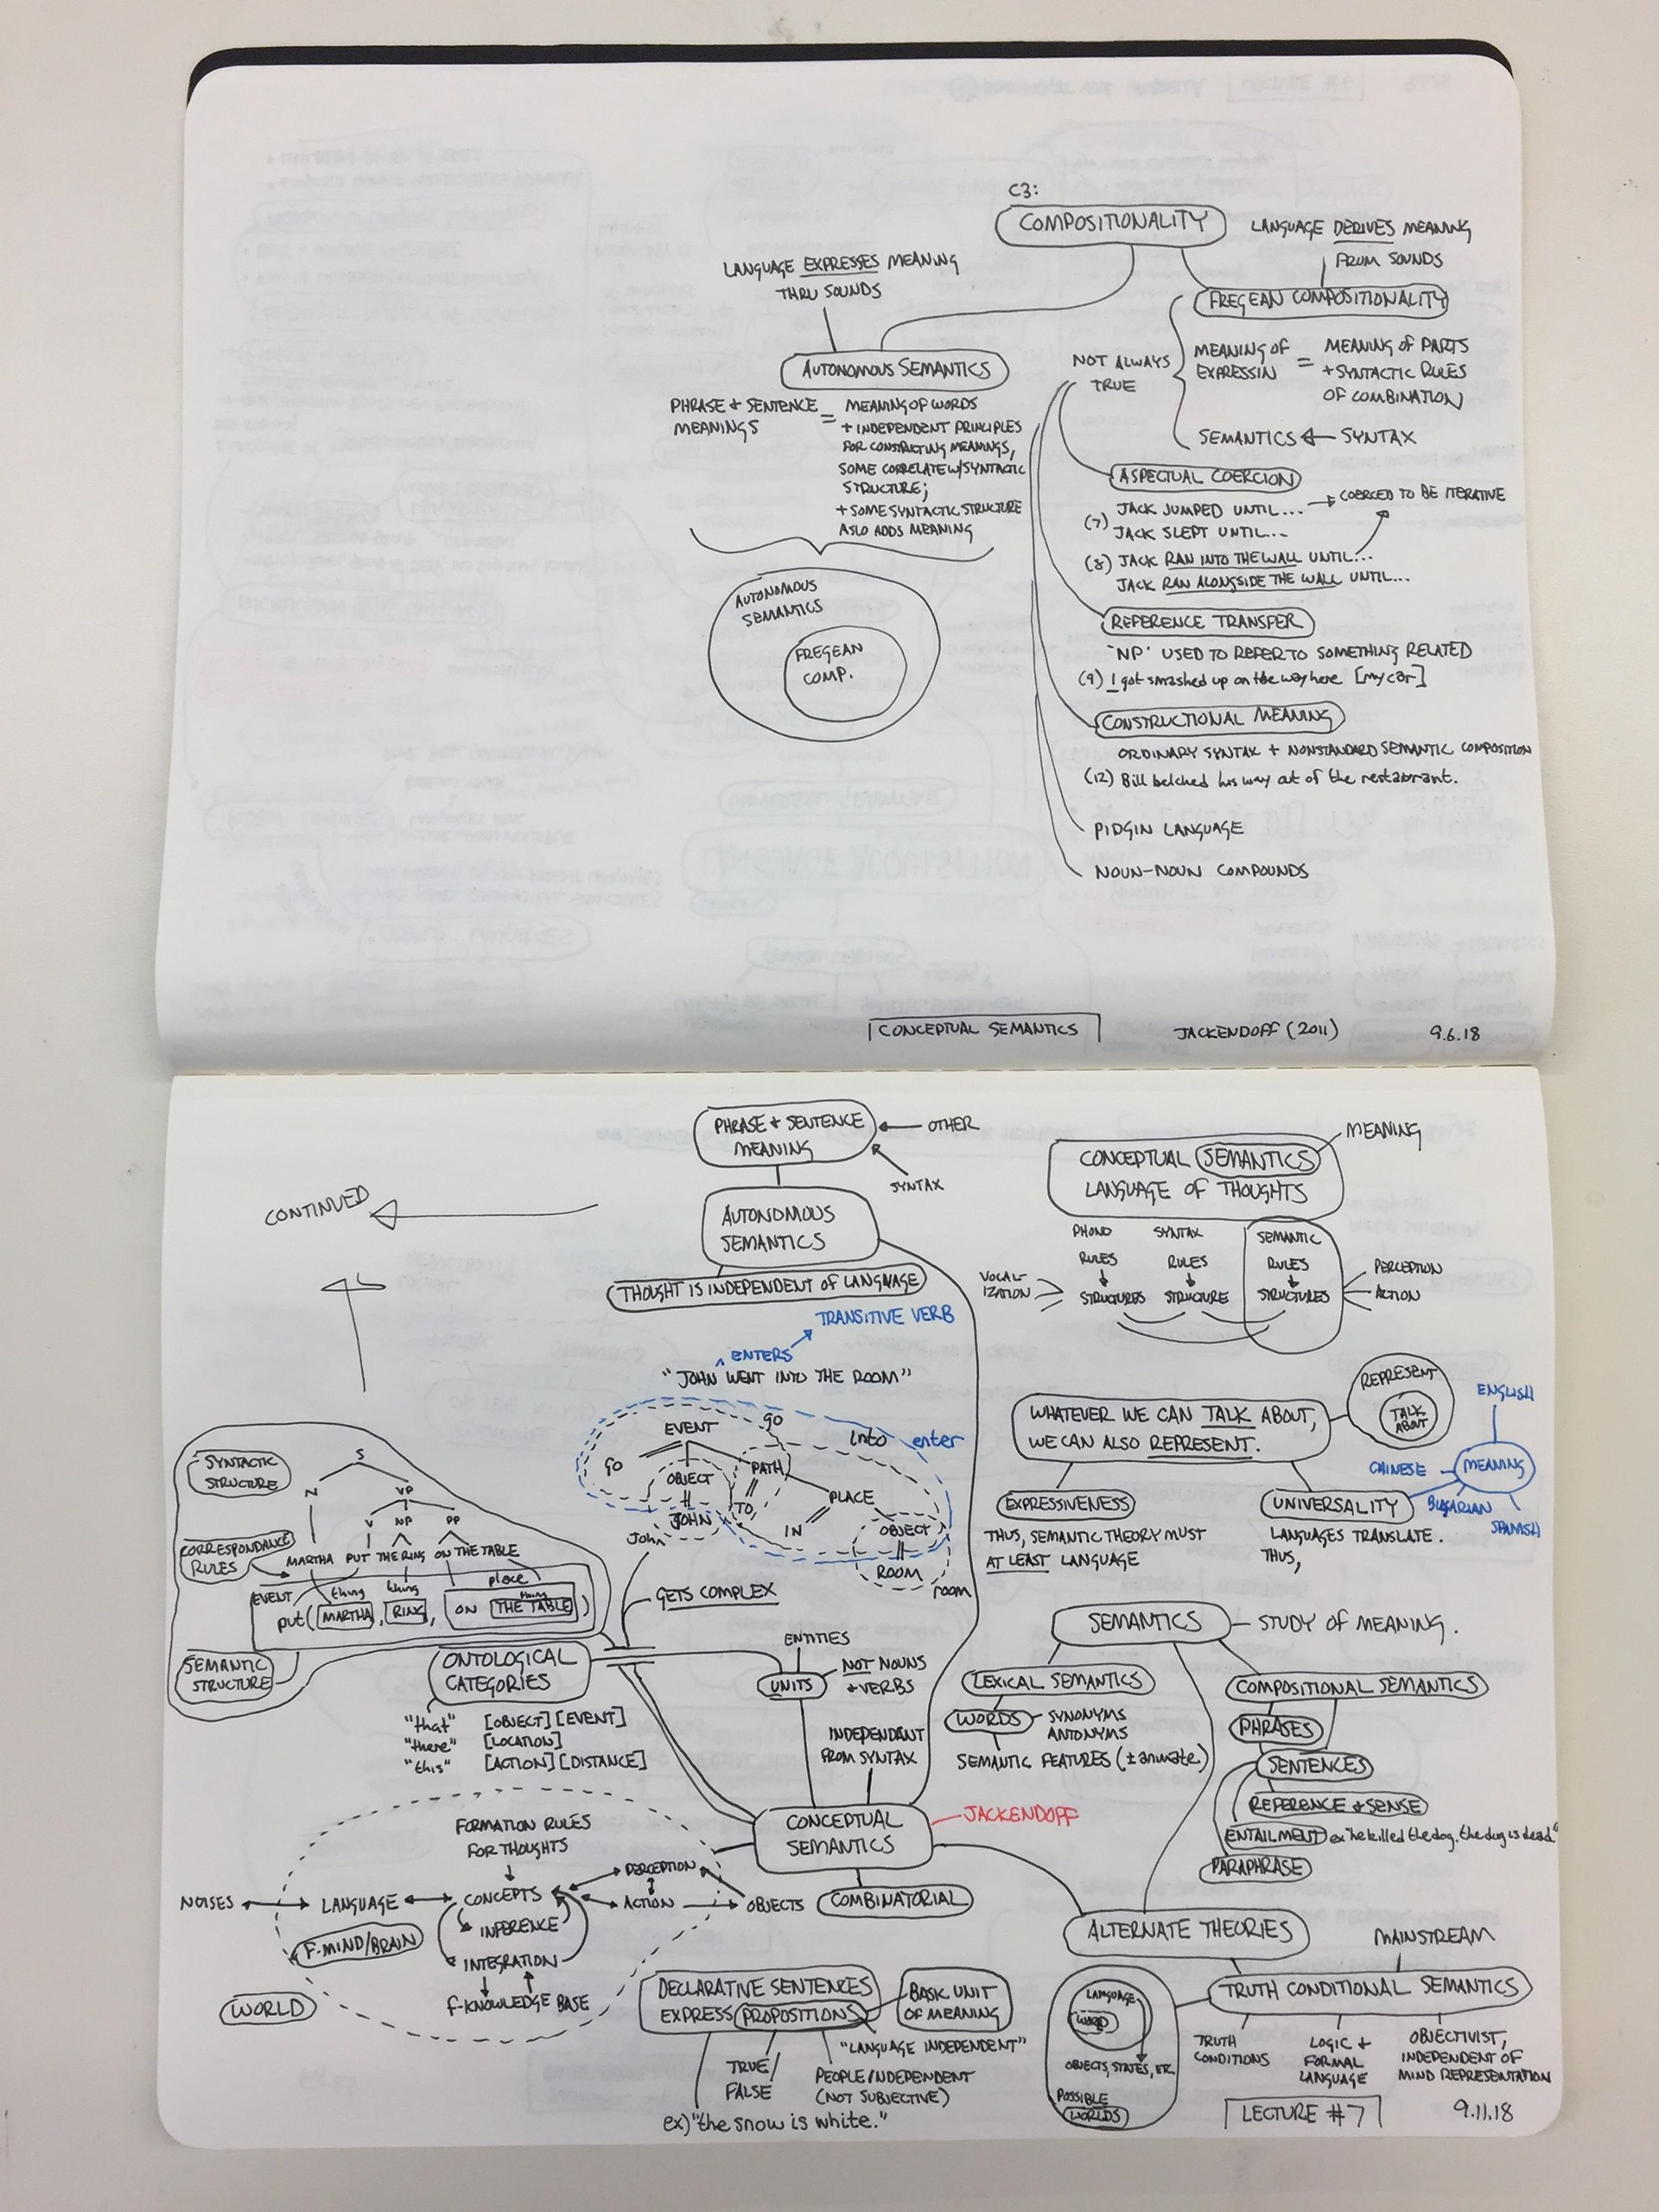 C3:
COMPOSITIONALITY
LANGUAGE DERIVES MEANING
FROM SOUNDS
LANGUAGE EXPRESSES MEANING
THRU SOUNDS
FREGEAN COMPOSITIONALITY
NOT ALWAYS
TRUE
MEANING OF
EXPRESSIN
=
MEANING OF PARTS
+ SYNTACTIC RULES
OF COMBINATION
SEMANTICS ← SYNTAX
AUTONOMOUS SEMANTICS
PHRASE + SENTENCE
MEANINGS
=
MEANING OF WORDS
+ INDEPENDENT PRINCIPLES
FOR CONSTRUCTING MEANINGS,
SOME CORRELATE W/SYNTACTIC
STRUCTURE;
+ SOME SYNTACTIC STRUCTURE
ASLO ADDS MEANING
AUTONOMOUS
SEMANTICS
FREGEAN
COMP.
ASPECTUAL COERCION
(7) JACK JUMPED UNTIL... → COERCED TO BE ITERATIVE
JACK SLEPT UNTIL...
(8) JACK RAN INTO THE WALL UNTIL...
JACK RAN ALONGSIDE THE WALL UNTIL...
REFERENCE TRANSFER
"NP" USED TO REFER TO SOMETHING RELATED
(9) I got smashed up on the way here [my car]
CONSTRUCTIONAL MEANING
ORDINARY SYNTAX + NONSTANDARD SEMANTIC COMPOSITION
(12) Bill belched his way out of the restaurant.
PIDGIN LANGUAGE
NOUN-NOUN COMPOUNDS
CONCEPTUAL SEMANTICS
JACKENDOFF (2011)
9.6.18
PHRASE + SENTENCE
MEANING
OTHER
SYNTAX
CONTINUED
AUTONOMOUS
SEMANTICS
THOUGHT IS INDEPENDENT OF LANGUAGE
MEANING
CONCEPTUAL SEMANTICS
LANGUAGE OF THOUGHTS
PHONO
RULES
STRUCTURES
SYNTAX
RULES
STRUCTURE
SEMANTIC
RULES
STRUCTURES
VOCAL-
IZATION
PERCEPTION
ACTION
TRANSITIVE VERB
ENTERS
"JOHN WENT INTO THE ROOM"
EVENT
go
GO
into
enter
OBJECT
JOHN
John
PATH
TO
PLACE
IN
OBJECT
ROOM
room
WHATEVER WE CAN TALK ABOUT,
WE CAN ALSO REPRESENT.
REPRESENT
TALK
ABOUT
EXPRESSIVENESS
THUS, SEMANTIC THEORY MUST
AT LEAST LANGUAGE
UNIVERSALITY
LANGUAGES TRANSLATE.
THUS,
ENGLISH
CHINESE
MEANING
BULGARIAN
SPANISH
SYNTACTIC
STRUCTURE
S
N
VP
V
NP
PP
MARTHA PUT THE RING ON THE TABLE
CORRESPONDANCE
RULES
EVENT
thing
thing
place
thing
put( MARTHA, RING, ON THE TABLE )
SEMANTIC
STRUCTURE
GETS COMPLEX
ONTOLOGICAL
CATEGORIES
"that" [OBJECT] [EVENT]
"there" [LOCATION]
"this" [ACTION] [DISTANCE]
ENTITIES
UNITS
NOT NOUNS
+ VERBS
INDEPENDANT
FROM SYNTAX
SEMANTICS
STUDY OF MEANING.
LEXICAL SEMANTICS
WORDS
SYNONYMS
ANTONYMS
SEMANTIC FEATURES (± animate)
COMPOSITIONAL SEMANTICS
PHRASES
SENTENCES
REFERENCE + SENSE
ENTAILMENT ex "he killed the dog. the dog is dead"
PARAPHRASE
CONCEPTUAL
SEMANTICS
JACKENDOFF
COMBINATORIAL
FORMATION RULES
FOR THOUGHTS
NOISES
LANGUAGE
CONCEPTS
PERCEPTION
ACTION
OBJECTS
INFERENCE
INTEGRATION
F-KNOWLEDGE BASE
F-MIND/BRAIN
WORLD
DECLARATIVE SENTENCES
EXPRESS PROPOSITIONS
BASIC UNIT
OF MEANING
"LANGUAGE INDEPENDENT"
TRUE/
FALSE
PEOPLE INDEPENDENT
(NOT SUBJECTIVE)
ex) "the snow is white."
ALTERNATE THEORIES
MAINSTREAM
TRUTH CONDITIONAL SEMANTICS
TRUTH
CONDITIONS
LOGIC +
FORMAL
LANGUAGE
OBJECTIVIST,
INDEPENDENT OF
MIND REPRESENTATION
LANGUAGE
WORD
OBJECTS, STATES, ETC.
POSSIBLE
WORLDS
LECTURE #7
9.11.18